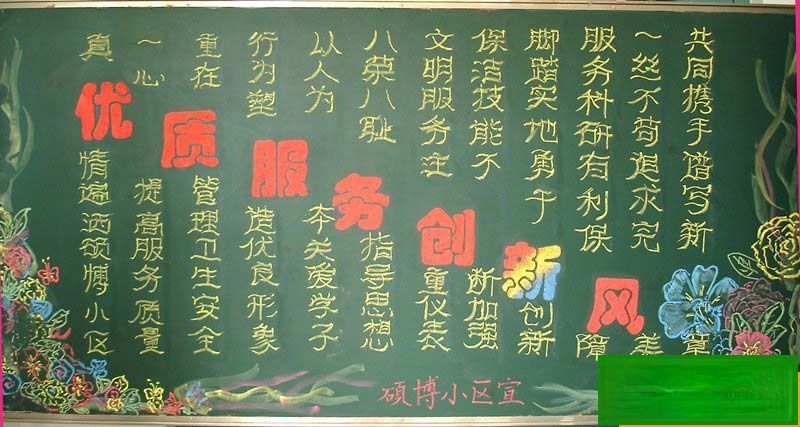 优质服务创新风
真情遍洒硕博小区
一心提高服务质量
重在管理卫生安全
行为塑造优良形象
以人为本关爱学子
八荣八耻指导思想
文明服务注重仪表
保洁技能不断加强
脚踏实地勇于创新
服务科研有利保障
一丝不苟追求完美
共同携手谱写新章
硕博小区宣